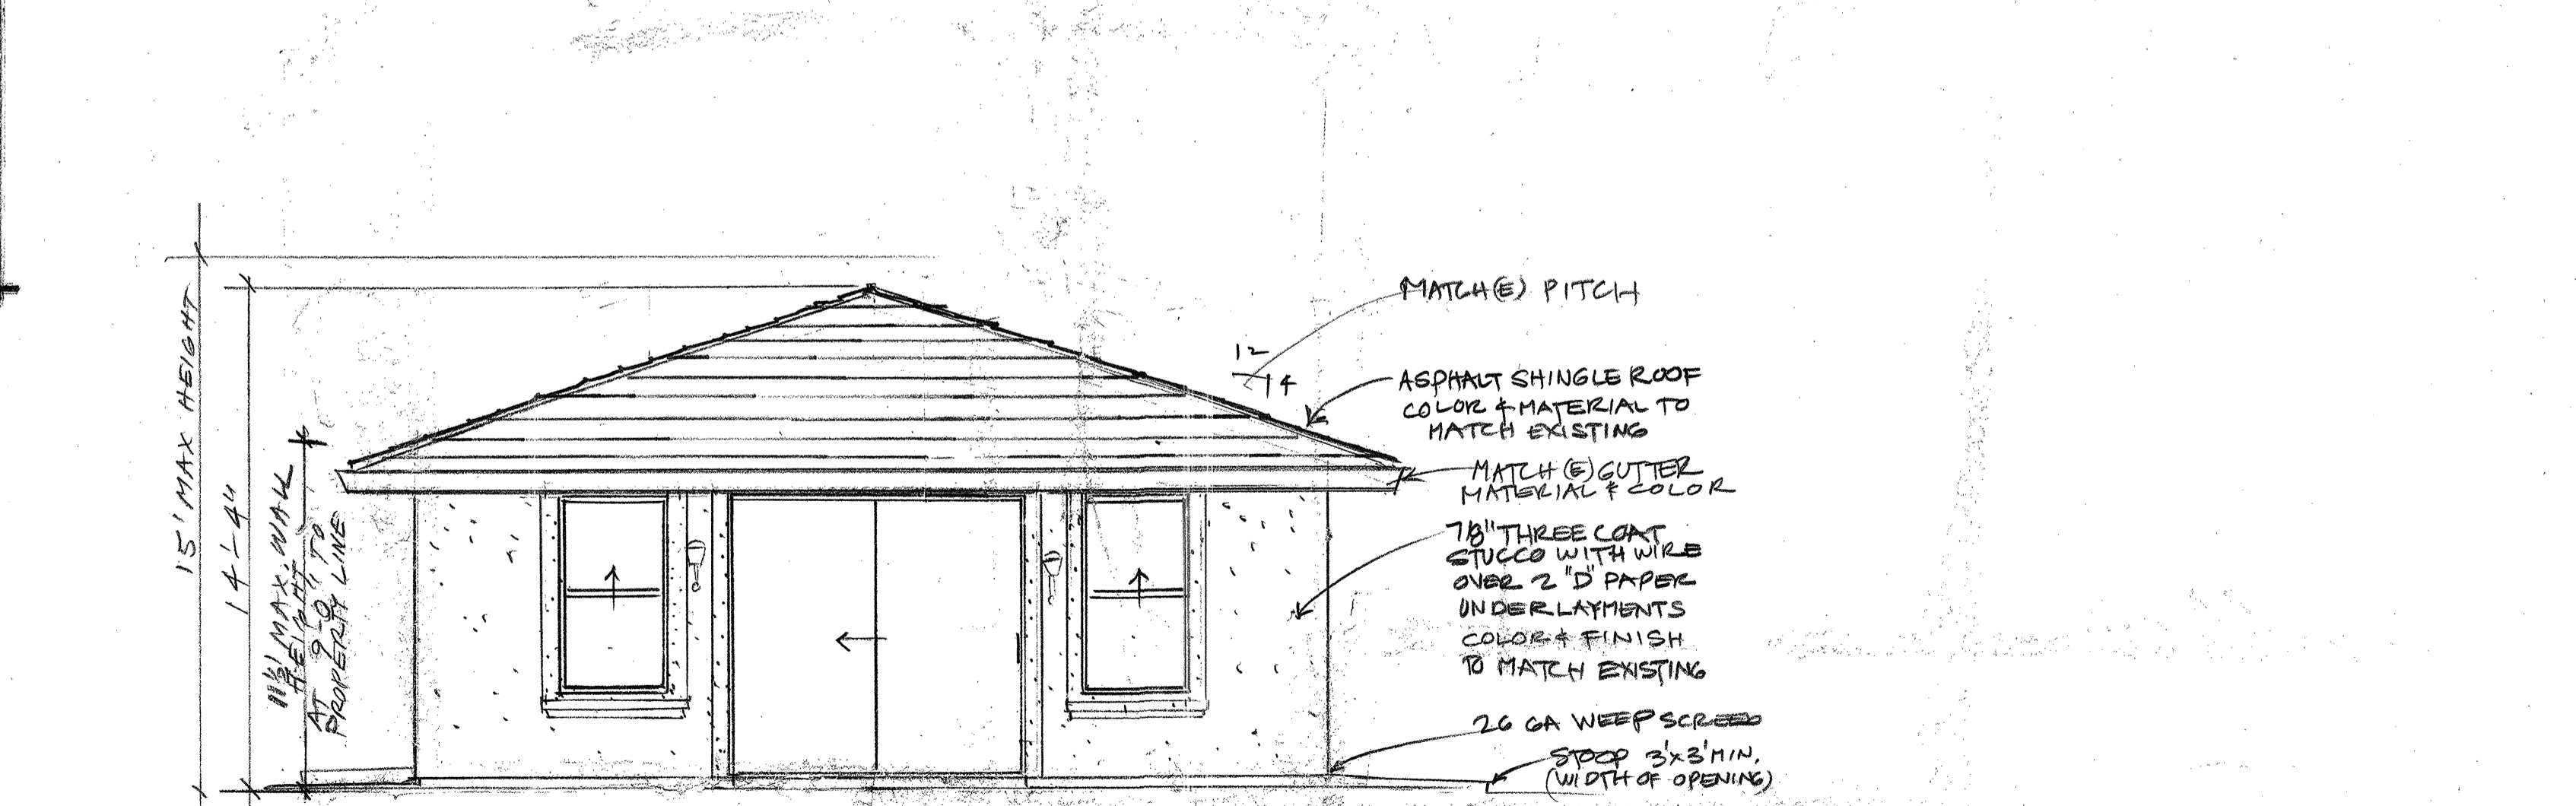 15' MAX HEIGHT
14'-4"
11½' MAX. WALL
HEIGHT
AT 9'-0" TO
PROPERTY LINE
MATCH (E) PITCH
12
4
ASPHALT SHINGLE ROOF
COLOR & MATERIAL TO
MATCH EXISTING
MATCH (E) GUTTER
MATERIAL & COLOR
7/8" THREE COAT
STUCCO WITH WIRE
OVER 2 "D" PAPER
UNDERLAYMENTS
COLOR & FINISH
TO MATCH EXISTING
26 GA WEEP SCREED
STOOP 3'x3' MIN.
(WIDTH OF OPENING)